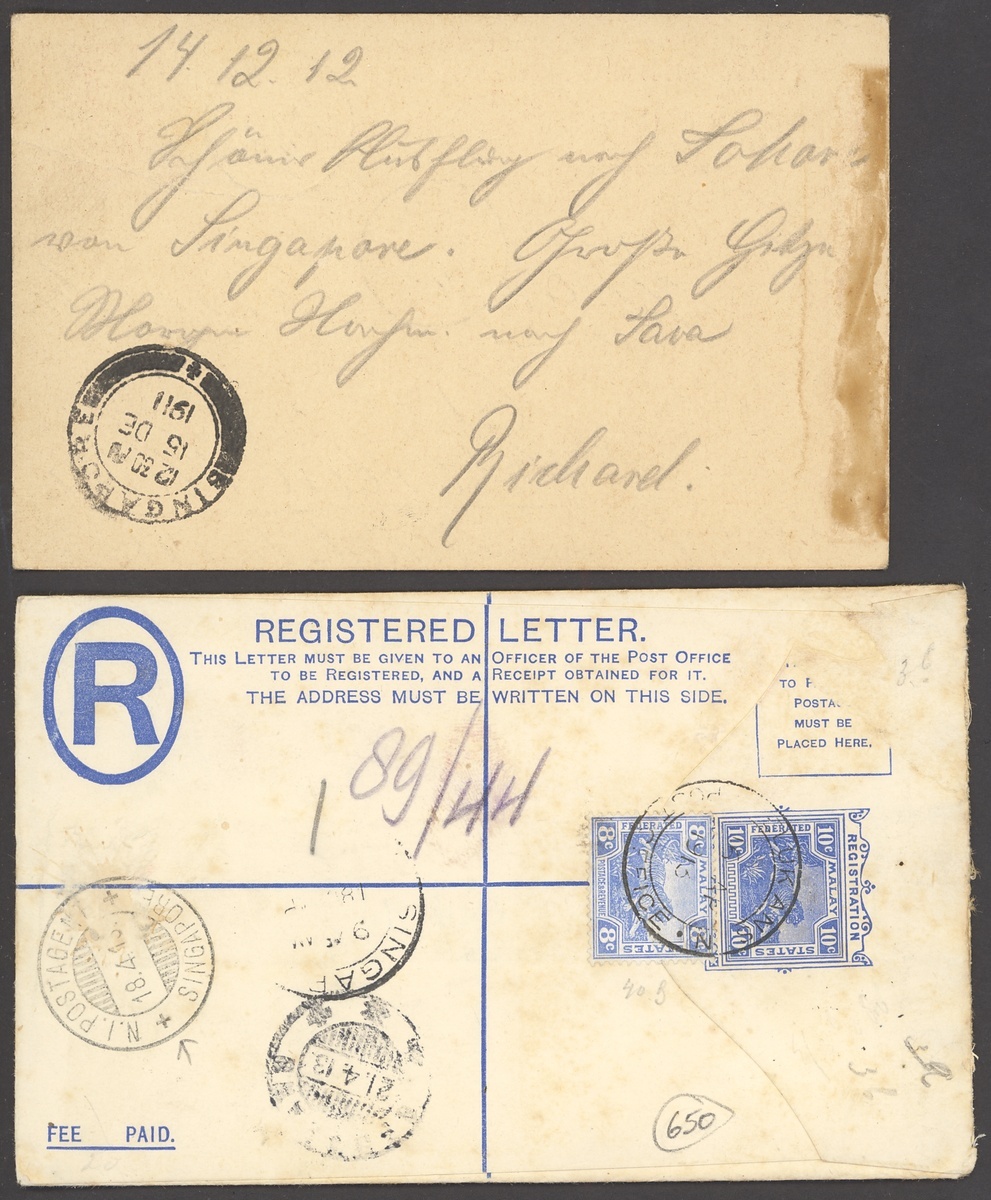 14.12.12
Schöner Ausflug nach Johor
von Singapore. Große Hitze
Morgen Nachm. nach Java
Richard.
SINGAPORE
12 30 PM
15 DE
1911
R
REGISTERED LETTER.
THIS LETTER MUST BE GIVEN TO AN OFFICER OF THE POST OFFICE
TO BE REGISTERED, AND A RECEIPT OBTAINED FOR IT.
THE ADDRESS MUST BE WRITTEN ON THIS SIDE.
TO P
POSTA
MUST BE
PLACED HERE.
1 89/44
8c FEDERATED 8c
MALAY
POSTAGE & REVENUE
8c STATES 8c
10c FEDERATED 10c
MALAY
10c STATES 10c
REGISTRATION
POST OFFICE
N.I. POSTAGENT
SINGAPORE
18.4.13
SINGAP
9 AM
18
21.4.13
40.9
3.6
36
650
FEE PAID.